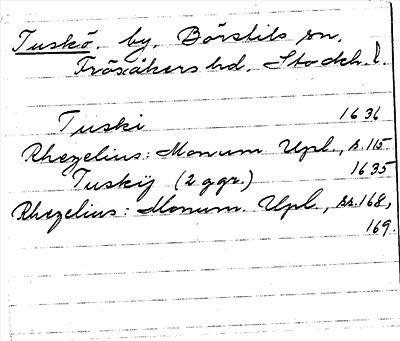 Tuskö, by, Börstils sn,
Frösåkers hd, Stockh. l.
Tuski 1636
Rhezelius: Monum Upl., s. 115
Tuskij (2 ggr.) 1635
Rhezelius: Monum. Upl., ss. 168,
169.